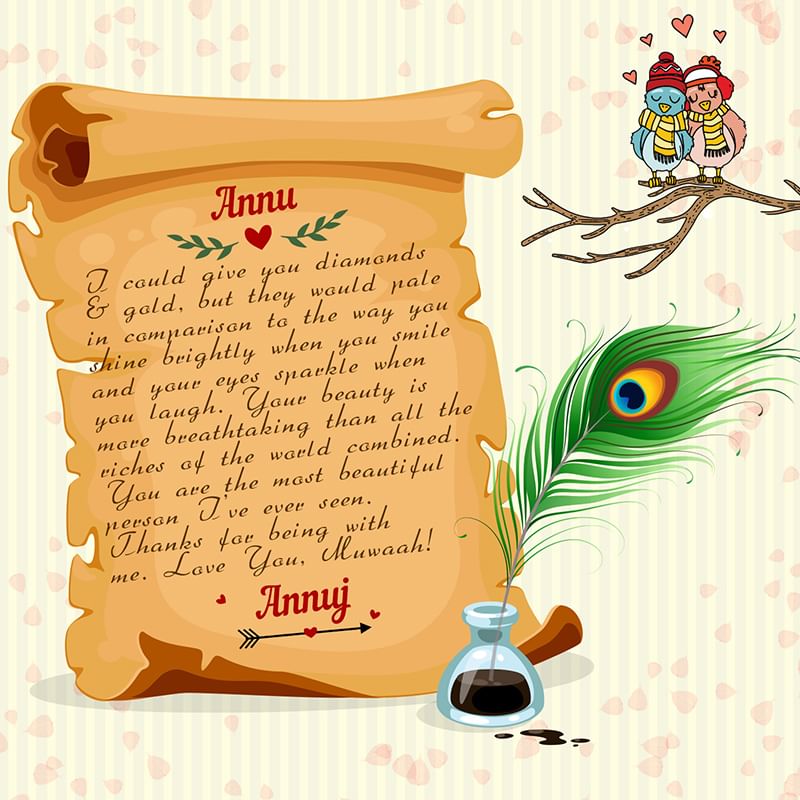 Annu
I could give you diamonds
& gold, but they would pale
in comparison to the way you
shine brightly when you smile
and your eyes sparkle when
you laugh. Your beauty is
more breathtaking than all the
riches of the world combined.
You are the most beautiful
person I've ever seen.
Thanks for being with
me. Love You, Muwaah!
Annuj